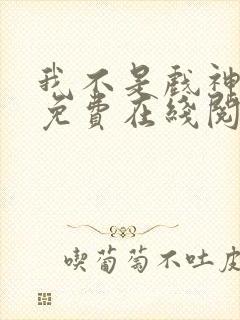 我不是戲神
免費在綫閱
喫葡萄不吐皮